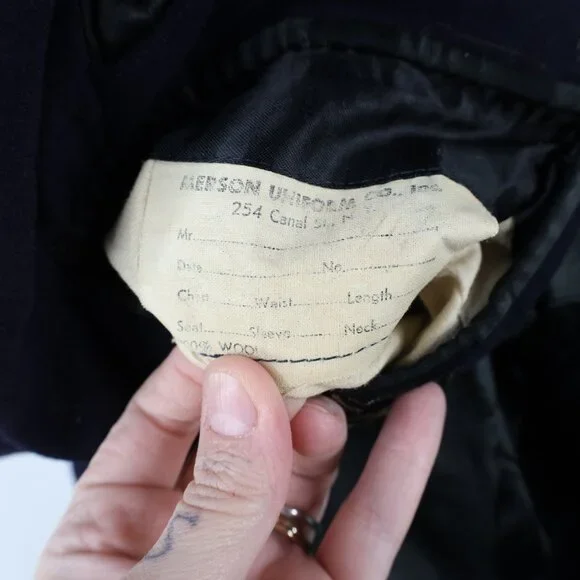 MERSON UNIFORM CO., Inc.
254 Canal St.
Mr.
Date No.
Chest Waist Length
Seat Sleeve Neck
100% WOOL